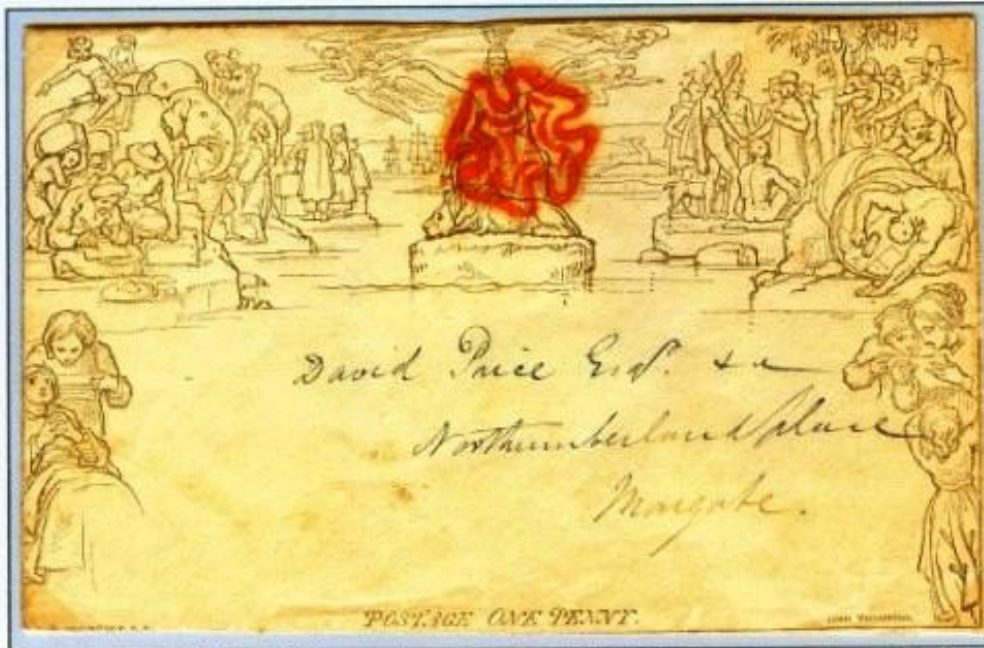 David Price Esqr. &c
Northumberland place
Margate.
POSTAGE ONE PENNY.
JOHN THOMPSON.